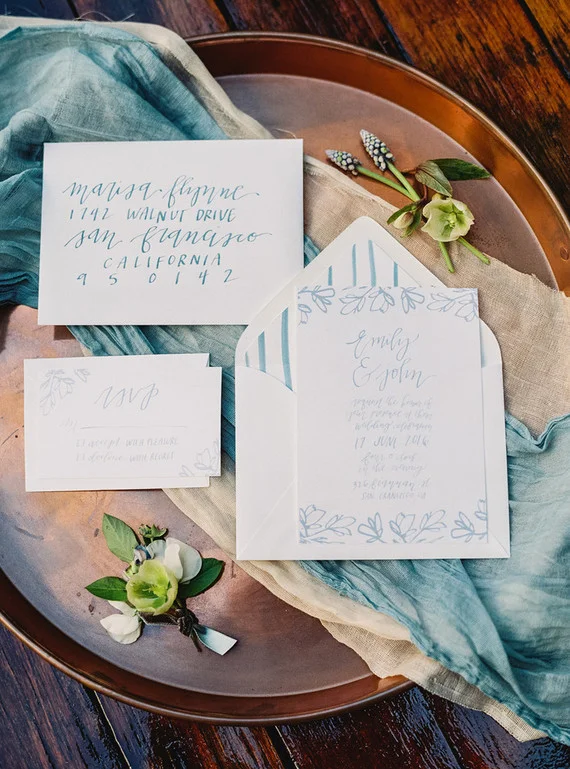 marisa flynne
1742 WALNUT DRIVE
san francisco
CALIFORNIA
9 5 0 1 4 2
rsvp
accept WITH PLEASURE
decline WITH REGRET
Emily
& John
request the honor of
your presence at their
wedding celebration
17 JUN 2016
in the evening
SAN FRANCISCO CA